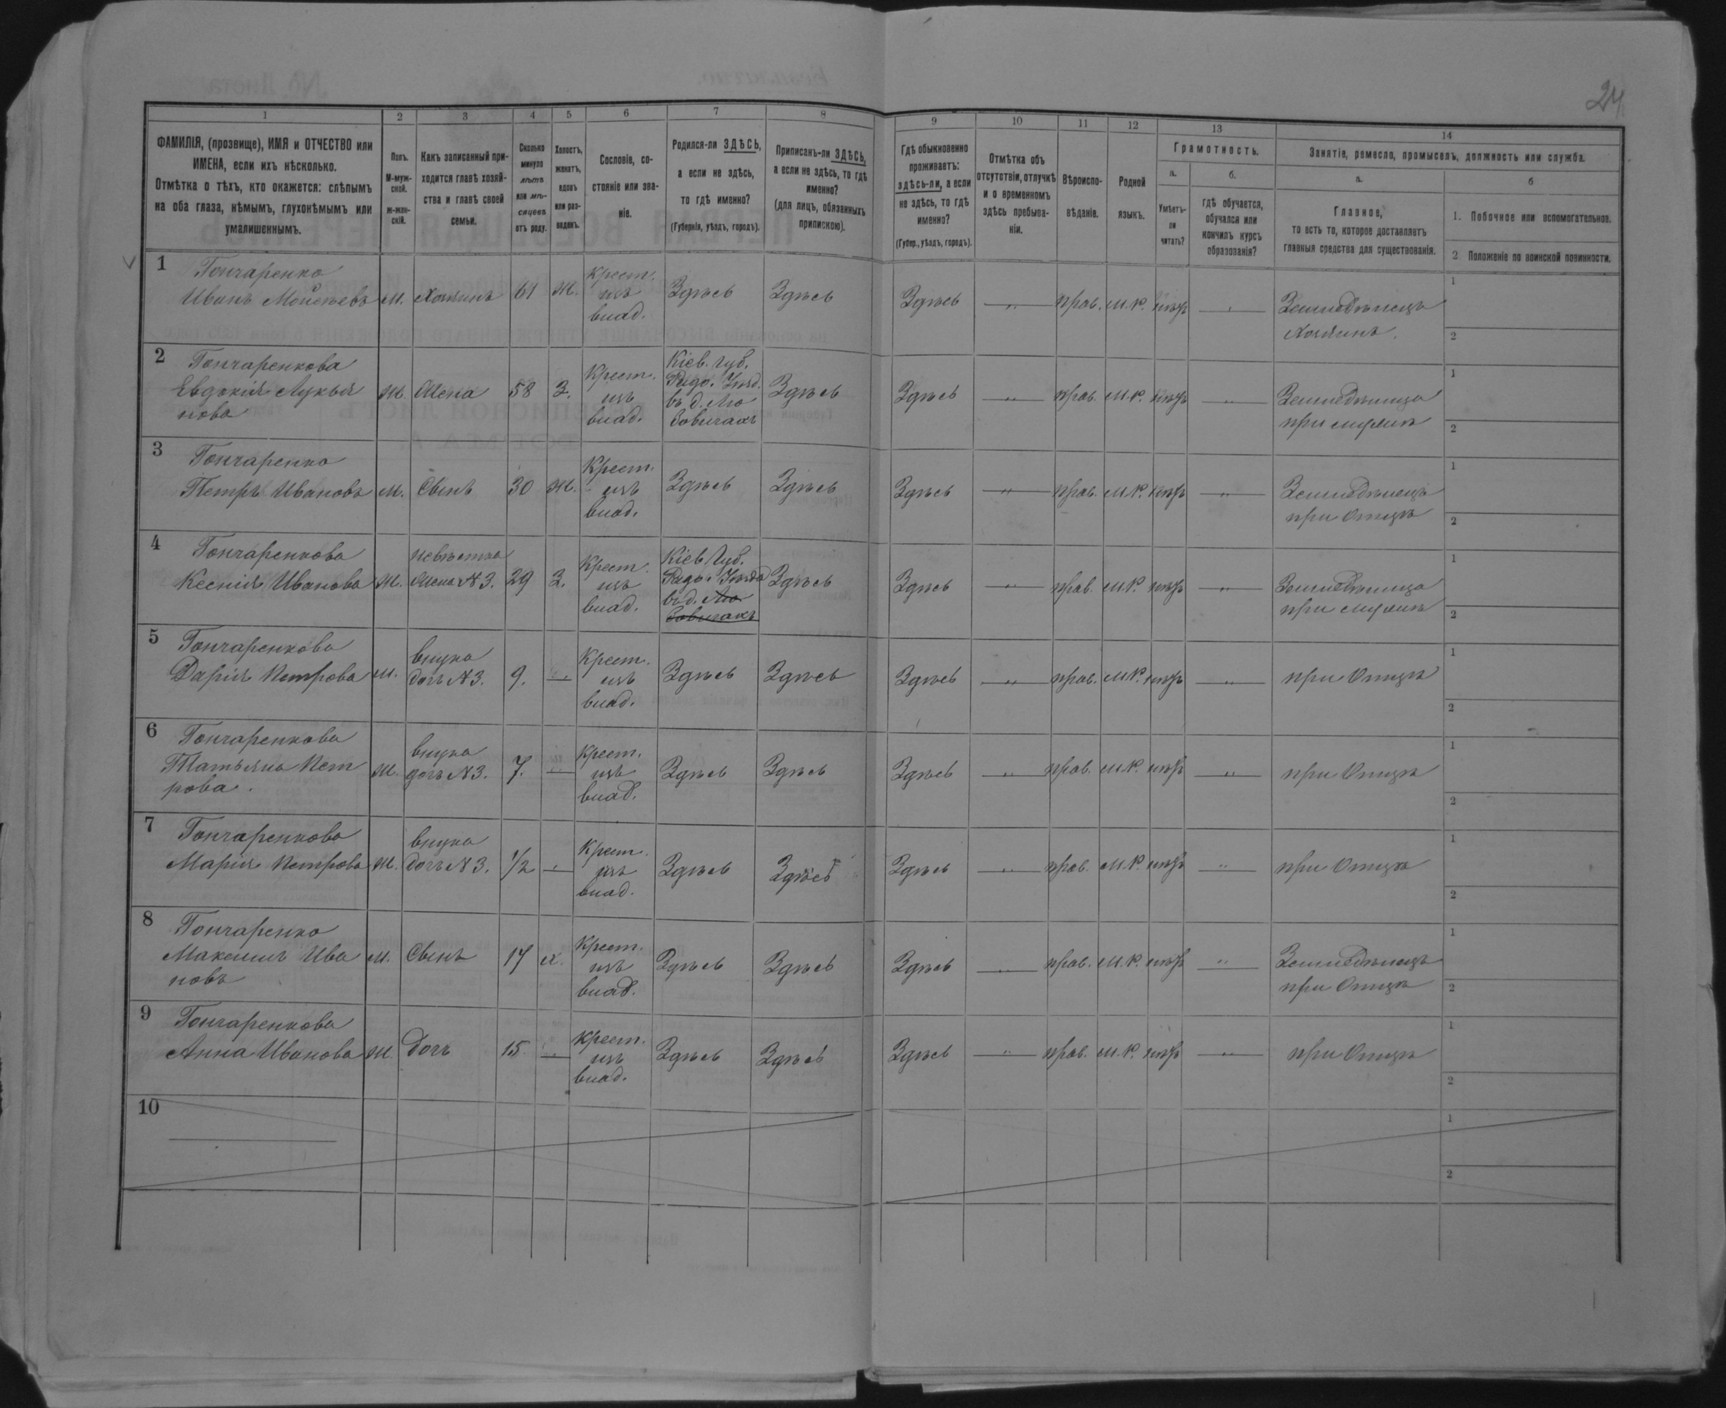 24
1 2 3 4 5 6 7 8 9 10 11 12 13 14
ФАМИЛІЯ, (прозвище), ИМЯ и ОТЧЕСТВО или
ИМЕНА, если ихъ нѣсколько.
Отмѣтка о тѣхъ, кто окажется: слѣпымъ
на оба глаза, нѣмымъ, глухонѣмымъ или
умалишеннымъ.
Полъ.
М-муж-
ской.
Ж-жен-
скій.
Какъ записанный при-
ходится главѣ хозяй-
ства и главѣ своей
семьи.
Сколько
минуло
лѣтъ
или мѣ-
сяцевъ
отъ роду.
Холостъ,
женатъ,
вдовъ
или раз-
веденъ.
Сословіе, со-
стояніе или зва-
ніе.
Родился-ли ЗДѢСЬ,
а если не здѣсь,
то гдѣ именно?
(Губернія, уѣздъ, городъ).
Приписанъ-ли ЗДѢСЬ,
а если не здѣсь, то гдѣ
именно?
(для лицъ, обязанныхъ
припискою).
Гдѣ обыкновенно
проживаетъ:
здѣсь-ли, а если
не здѣсь, то гдѣ
именно?
(Губер., уѣздъ, городъ).
Отмѣтка объ
отсутствіи, отлучкѣ
и о временномъ
здѣсь пребыва-
ніи.
Вѣроиспо-
вѣданіе.
Родной
языкъ.
Грамотность.
а.
Умѣетъ-
ли
читать?
б.
гдѣ обучается,
обучался или
кончилъ курсъ
образованія?
Занятіе, ремесло, промыселъ, должность или служба.
а.
Главное,
то есть то, которое доставляетъ
главныя средства для существованія.
б
1. Побочное или вспомогательное.
2 Положеніе по воинской повинности.
1
Гончаренко
Иванъ Моисеевъ м. хозяинъ 61 ж. Крест. изъ влад. Здѣсь Здѣсь Здѣсь — прав. м.р. нѣтъ — Земледѣлецъ
Хозяинъ. 1 2
2
Гончаренкова
Евдокія Лукья
нова ж жена 58 З. Крест. изъ влад. Кіев. губ.
Радо. Уѣзд.
въ д. Лю Здѣсь Здѣсь — прав. м.р. нѣтъ — Земледѣлица
при мужѣ 1 2
3
Гончаренко
Петръ Ивановъ м. Сынъ 30 ж. Крест. изъ влад. Здѣсь Здѣсь Здѣсь — прав. м.р. нѣтъ — Земледѣлецъ
при Отцѣ 1 2
4
Гончаренкова
Ксенія Иванова ж. невѣстка
жена №3. 29 З. Крест. изъ влад. Кіев. Губ.
Радо. Уѣзда
въ д. Здѣсь Здѣсь — прав. м.р. нѣтъ — Земледѣлица
при мужѣ 1 2
5
Гончаренкова
Дарія Петрова ж. внука
дочь №3. 9. — Крест. изъ влад. Здѣсь Здѣсь Здѣсь — прав. м.р. нѣтъ — при Отцѣ 1 2
6
Гончаренкова
Татьяна Пет
рова. ж. внука
дочь №3. 7. — Крест. изъ влад. Здѣсь Здѣсь Здѣсь — прав. м.р. нѣтъ — при Отцѣ 1 2
7
Гончаренкова
Марія Петрова ж. внука
дочь №3. 1/2 — Крест. изъ влад. Здѣсь Здѣсь Здѣсь — прав. м.р. нѣтъ — при Отцѣ 1 2
8
Гончаренко
Максимъ Ива
новъ м. Сынъ 17 х. Крест. изъ влад. Здѣсь Здѣсь Здѣсь — прав. м.р. нѣтъ — Земледѣлецъ
при Отцѣ 1 2
9
Гончаренкова
Анна Иванова ж дочь 15 — Крест. изъ влад. Здѣсь Здѣсь Здѣсь — прав. м.р. нѣтъ — при Отцѣ 1 2
10 1 2